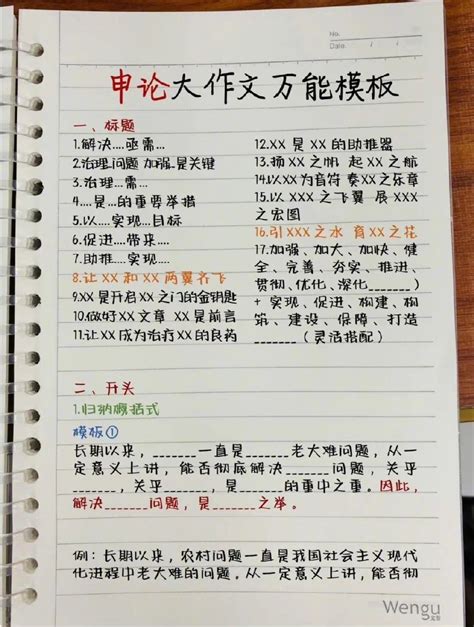 No.
Date. / /
申论大作文万能模板
一、标题
1.解决....亟需...
2.治理.问题 加强.是关键
3.治理...需...
4....是....的重要举措
5.以....实现...目标
6.促进....带来....
7.助推....实现...
8.让 XX 和 XX 两翼齐飞
9.XX 是开启 XX 之门的金钥匙
10.做好 XX 文章 XX 是前言
11.让 XX 成为治疗 XX 的良药
12.XX 是 XX 的助推器
13.扬 XX 之帆 起 XX 之航
14.以XX 为音符 奏XX 之乐章
15.以 XXX 之飞翼 展 XXX
之宏图
16.引 XXX 之水 育 XX 之花
17.加强、加大、加快、健
全、完善、夯实、推进、
贯彻、优化、深化_______)
+ 实现、促进、构建、构
筑、建设、保障、打造
_______(灵活搭配)
二、开头
1.归纳概括式
模板①
长期以来,_______一直是_______老大难问题,从一
定意义上讲,能否彻底解决_______问题,关乎
_______,关乎_______,是_______的重中之重。因此,
解决_______问题,是_______之举。
例:长期以来,农村问题一直是我国社会主义现代
化进程中老大难的问题,从一定意义上讲,能否彻
Wengu